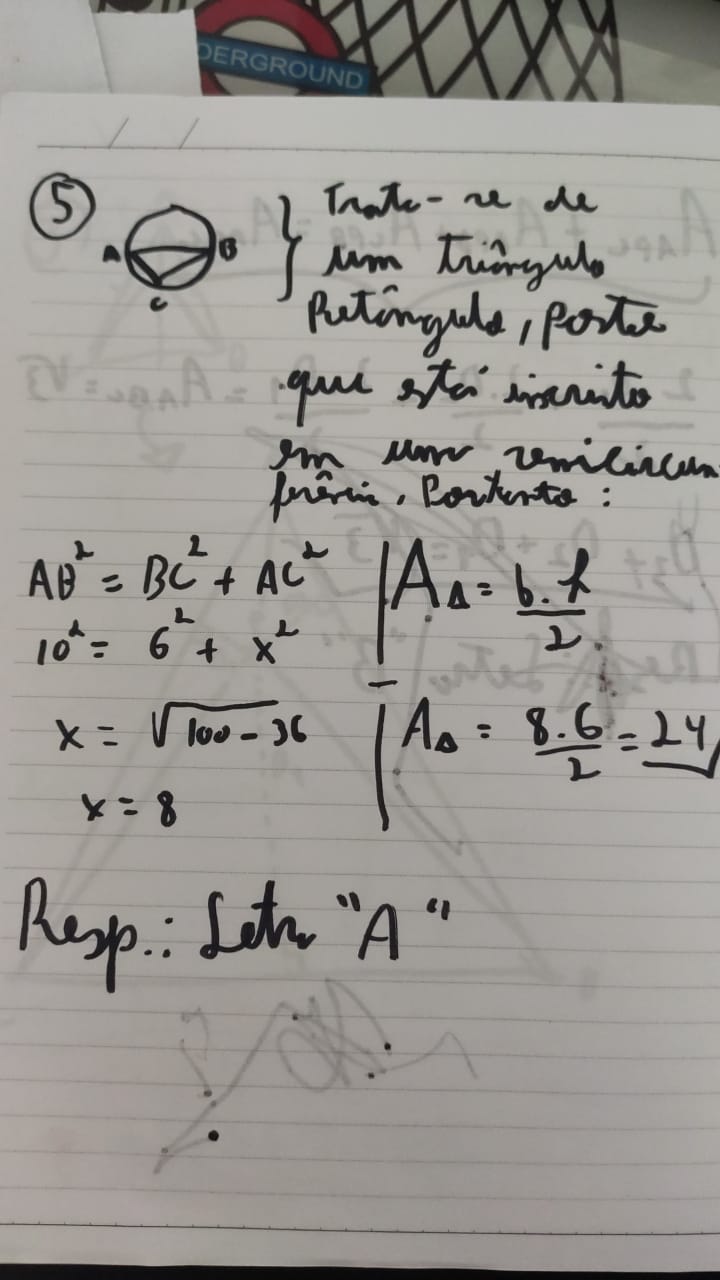 DERGROUND
/ /
5
A B
C
Trata-se de
um triângulo
Retângulo, posto
que está inscrito
em uma semicircun
ferência. Portanto:
AB² = BC² + AC²
10² = 6² + x²
x = √100-36
x = 8
A△ = b.h/2
A△ = 8.6/2 = 24
Resp.: Letra "A"